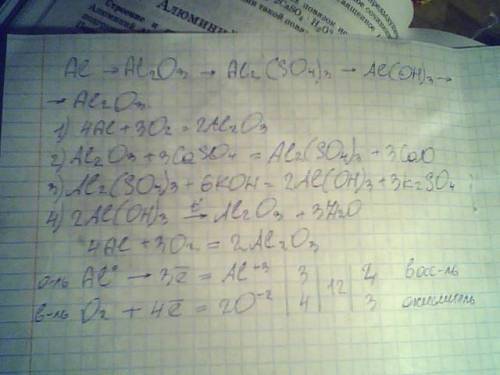 Строение и
Алюминий
Al → Al₂O₃ → Al₂(SO₄)₃ → Al(OH)₃ →
→ Al₂O₃.
1) 4Al + 3O₂ = 2Al₂O₃
2) Al₂O₃ + 3CaSO₄ = Al₂(SO₄)₃ + 3CaO
3) Al₂(SO₄)₃ + 6KOH = 2Al(OH)₃ + 3K₂SO₄
4) 2Al(OH)₃ →t° Al₂O₃ + 3H₂O
4Al + 3O₂ = 2Al₂O₃
о-ль Al⁰ → 3e̅ = Al⁺³ | 3 | 12 | 4 восс-ль
в-ль O₂ + 4e̅ = 2O⁻² | 4 | | 3 окислитель